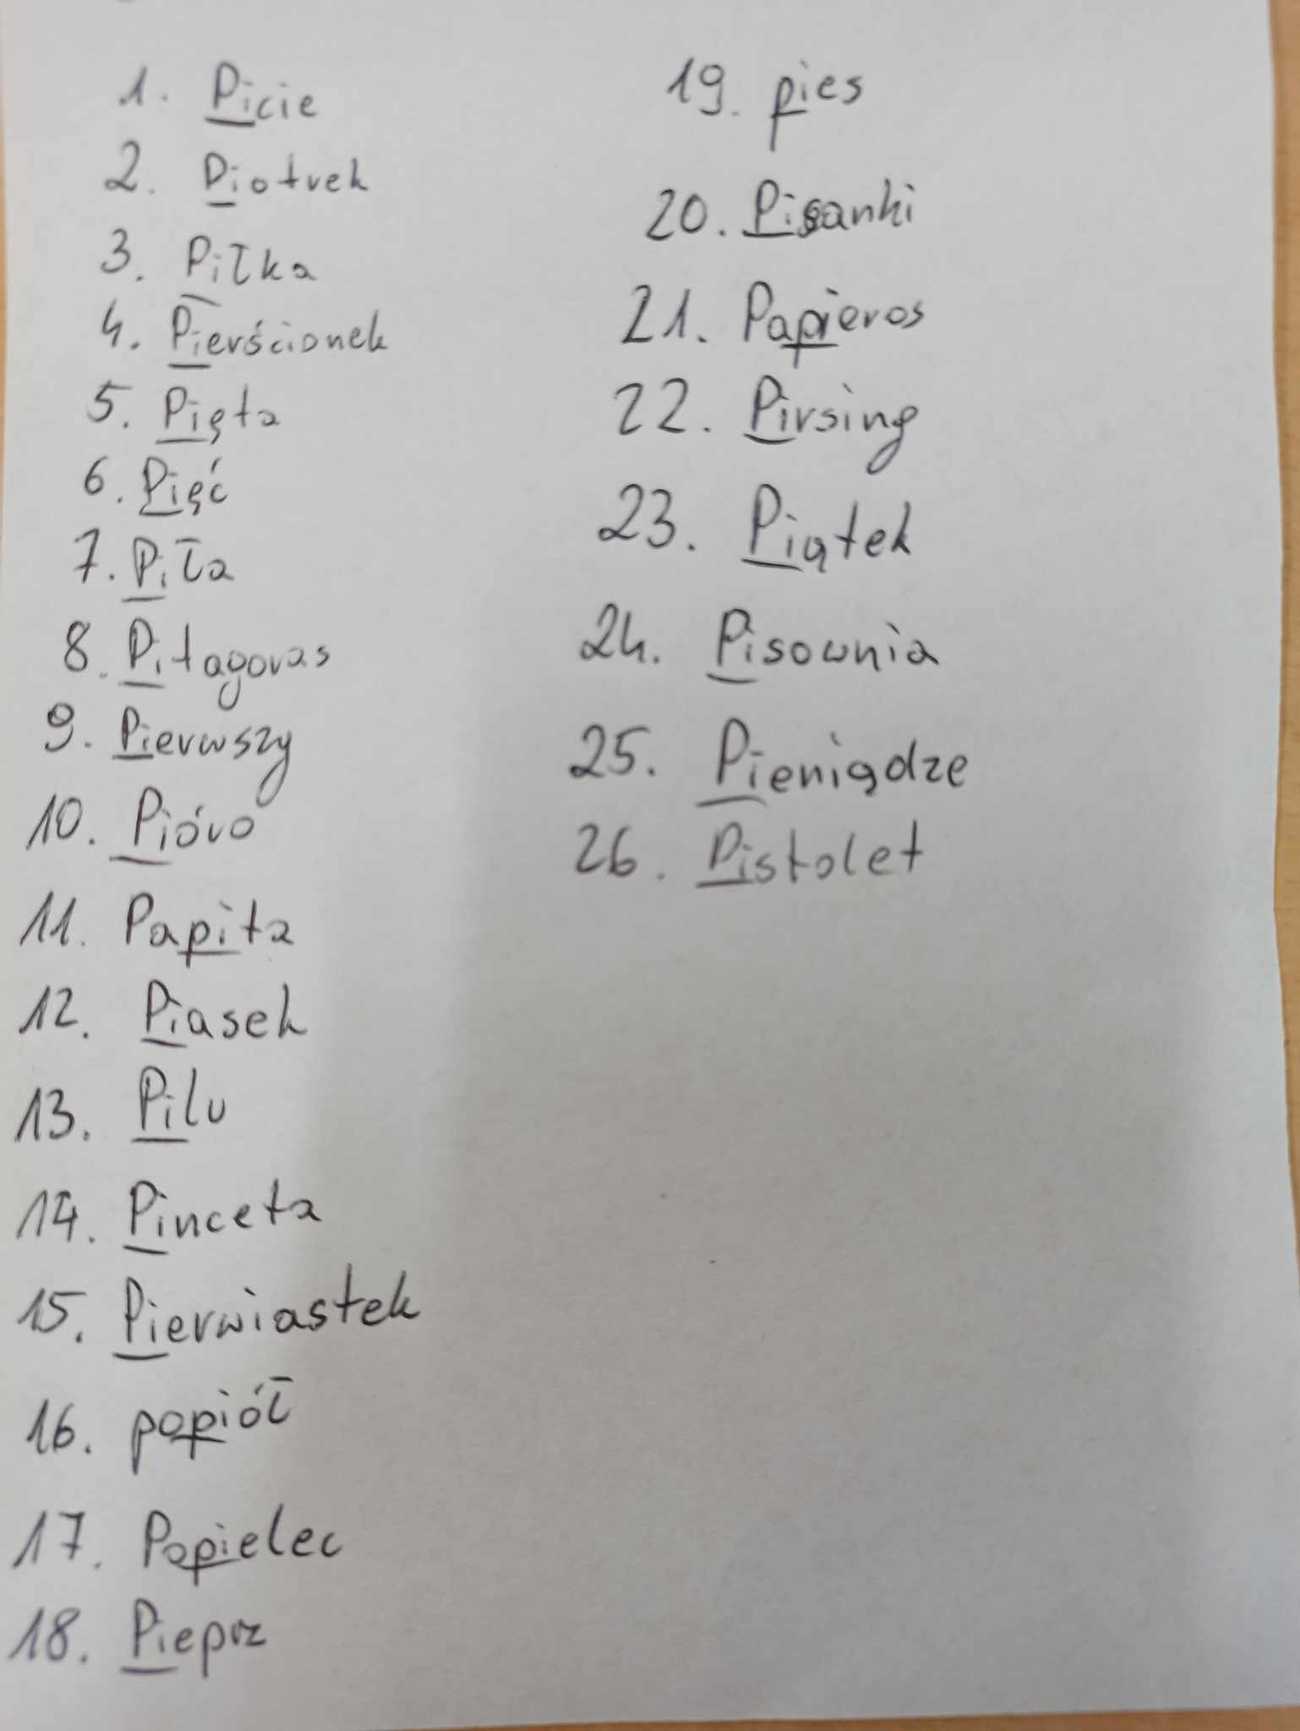 1. Picie
2. Piotrek
3. Piłka
4. Pierścionek
5. Pięta
6. Pięć
7. Piła
8. Pitagoras
9. Pierwszy
10. Pióro
11. Papita
12. Piasek
13. Pilu
14. Pinceta
15. Pierwiastek
16. popiół
17. Popielec
18. Pieprz
19. pies
20. Pisanki
21. Papieros
22. Pirsing
23. Piątek
24. Pisownia
25. Pieniądze
26. Pistolet